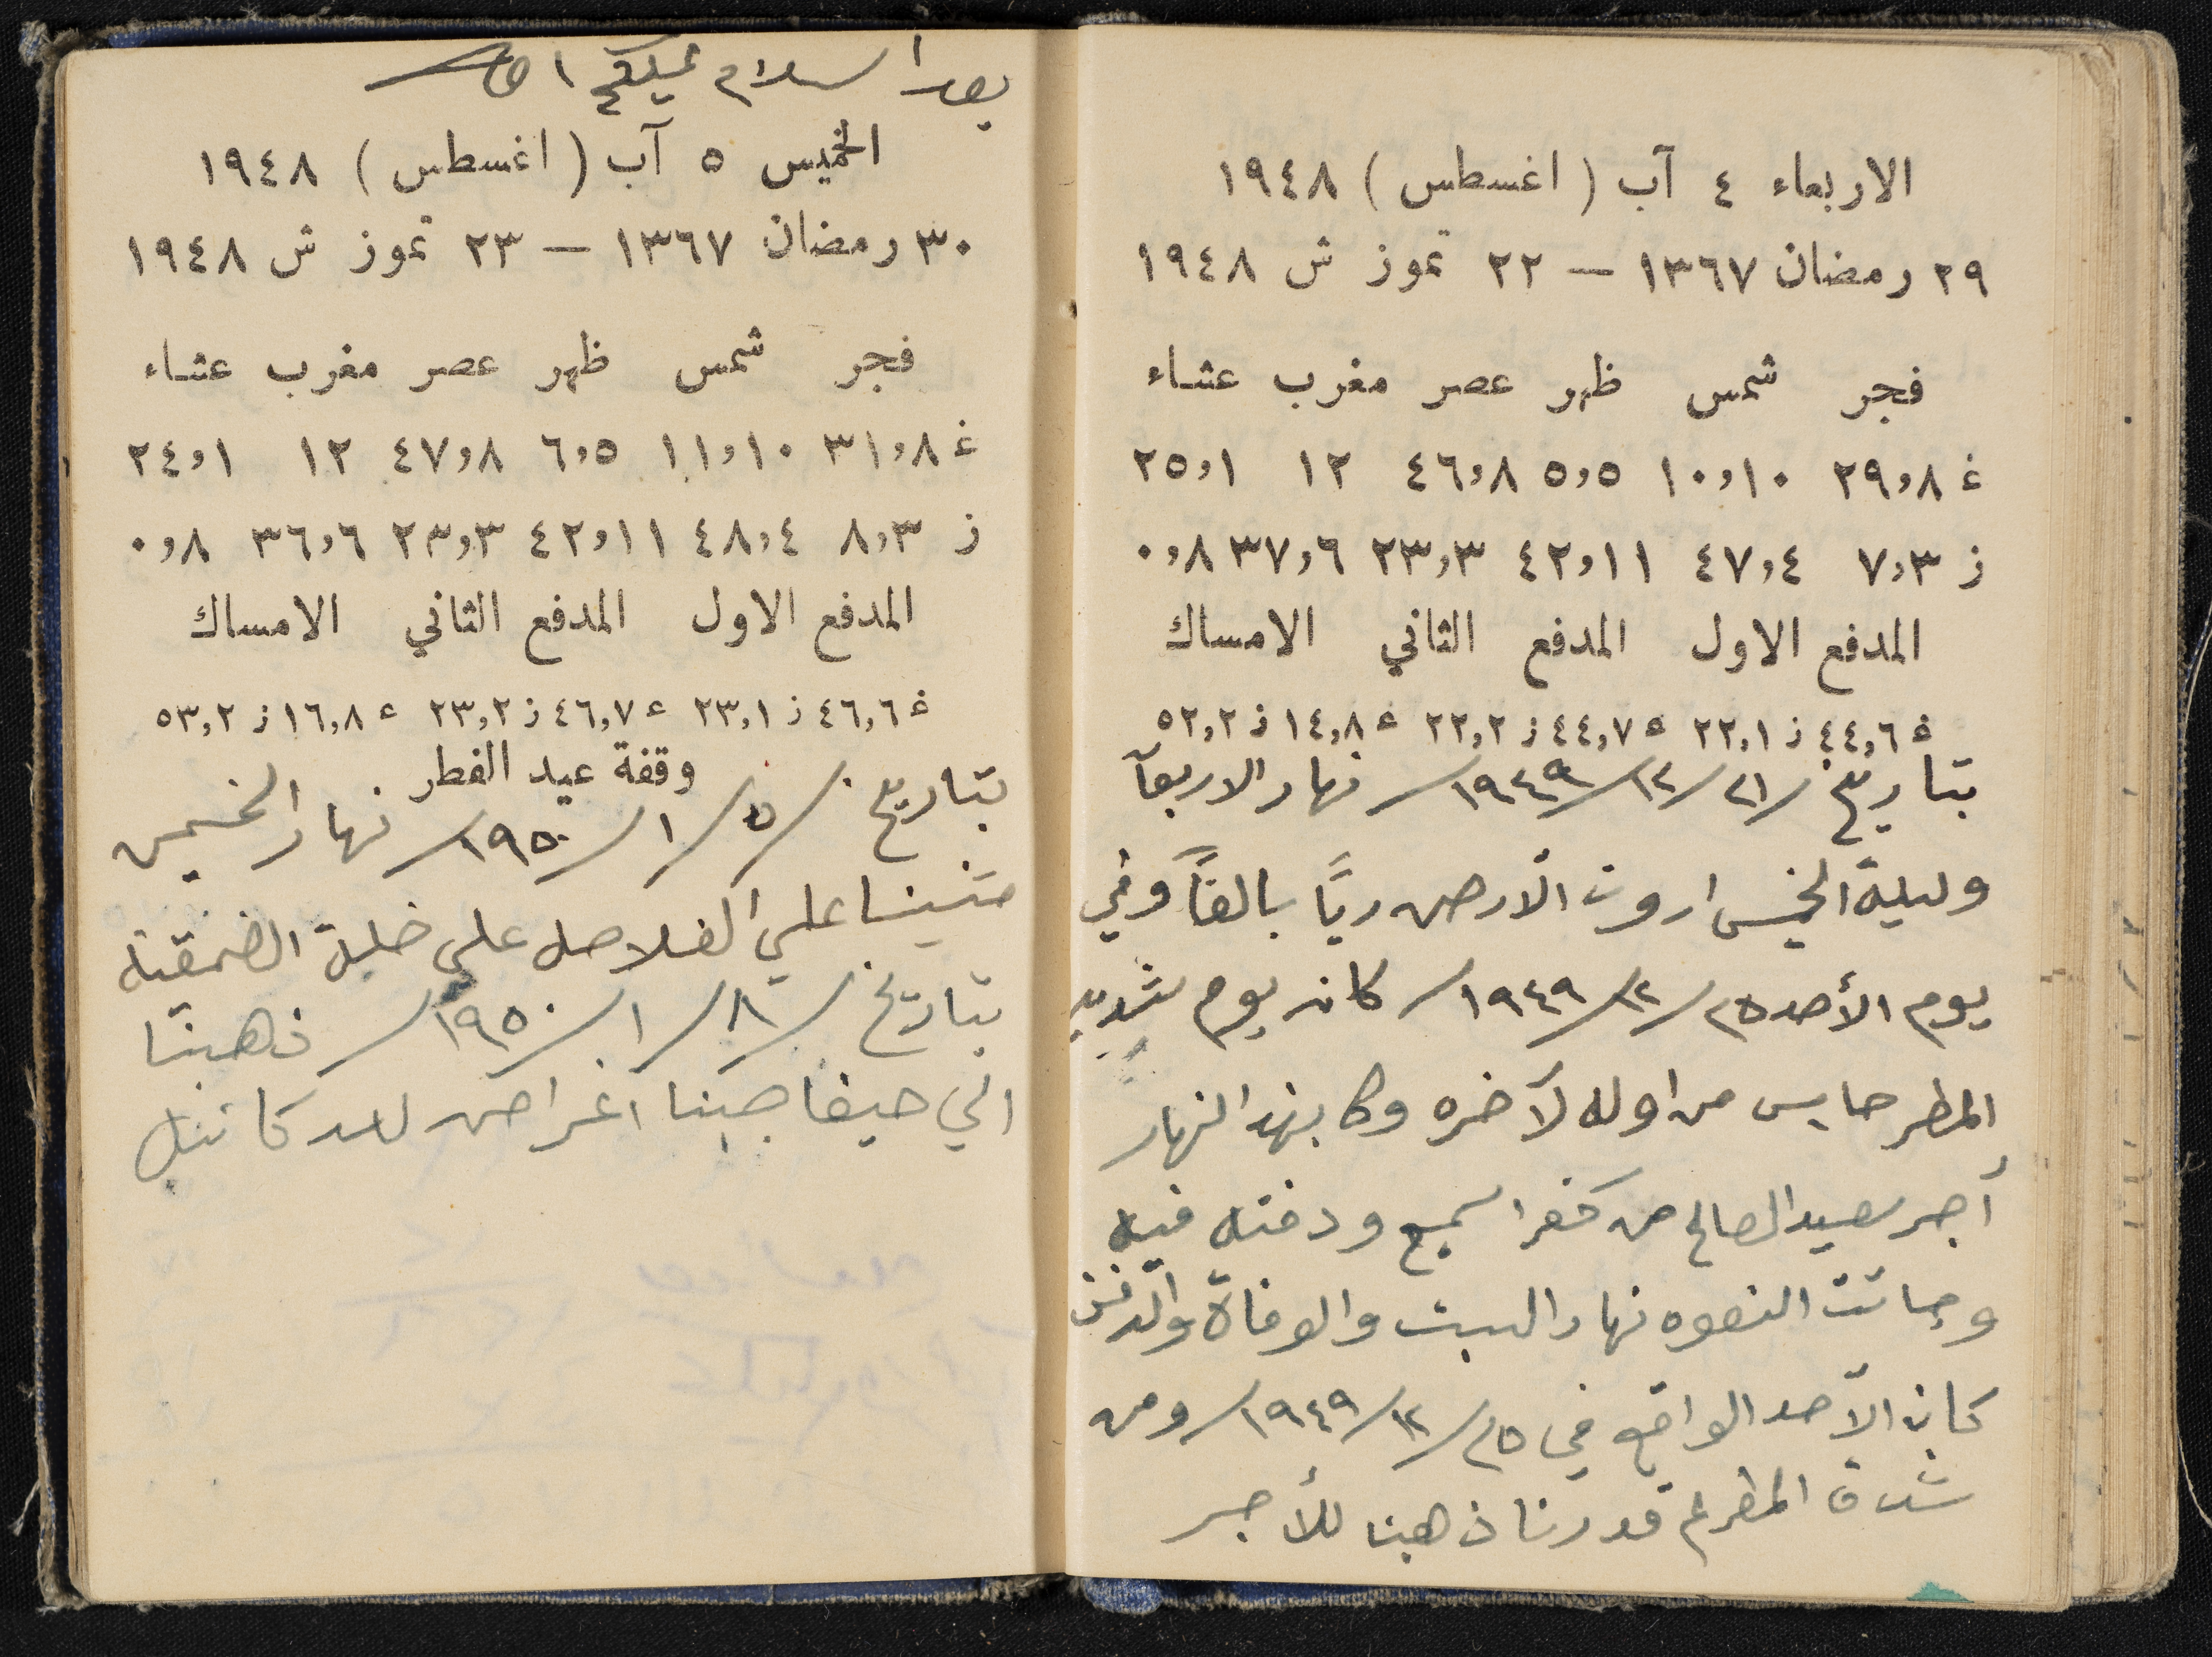 الاربعاء ٤ آب ( اغسطس ) ١٩٤٨
٢٩ رمضان ١٣٦٧ — ٢٢ تموز ش ١٩٤٨
فجر شمس ظهر عصر مغرب عشاء
غ ٢٩,٨ ١٠,١٠ ٥,٥ ٤٦,٨ ١٢ ٢٥,١
ز ٧,٣ ٤٧,٤ ٤٢,١١ ٢٣,٣ ٣٧,٦ ٠,٨
المدفع الاول المدفع الثاني الامساك
غ ٤٤,٦ ز ٢٢,١ غ ٤٤,٧ ز ٢٢,٢ غ ١٤,٨ ز ٥٢,٢
بتاريخ /٢١/١٢/١٩٤٩/ نهار الاربعآ
وليلة الخميس اروت الأرض ريًا بالغاً وفي
يوم الأحد ٢٥/١٢/١٩٤٩/ كان يوم شديد
المطر حايس من اوله لآخره وكا بهذا النهار
أجر سعيد الصالح من كفر اسميع ودفنه فيه
وجائت النعوه نهار السبت والوفاة والدفن
كان الأحد الواقع في ٢٥/١٢/١٩٤٩/ ومن
شدة المطر لم قدرنا ذهبنا للأجر
بعد اسلام عليكم
الخميس ٥ آب ( اغسطس ) ١٩٤٨
٣٠ رمضان ١٣٦٧ — ٢٣ تموز ش ١٩٤٨
فجر شمس ظهر عصر مغرب عشاء
غ ٣١,٨ ١١,١٠ ٦,٥ ٤٧,٨ ١٢ ٢٤,١
ز ٨,٣ ٤٨,٤ ٤٢,١١ ٢٣,٣ ٣٦,٦ ٠,٨
المدفع الاول المدفع الثاني الامساك
غ ٤٦,٦ ز ٢٣,١ غ ٤٦,٧ ز ٢٣,٢ غ ١٦,٨ ز ٥٣,٢
وقفة عيد الفطر
بتاريخ /٥/١/١٩٥٠/ نهار الخميس
علي الفلاصل على خلة
بتاريخ /٨/١/١٩٥٠/ ذهبنا
الي حيفا جبنا اغراض